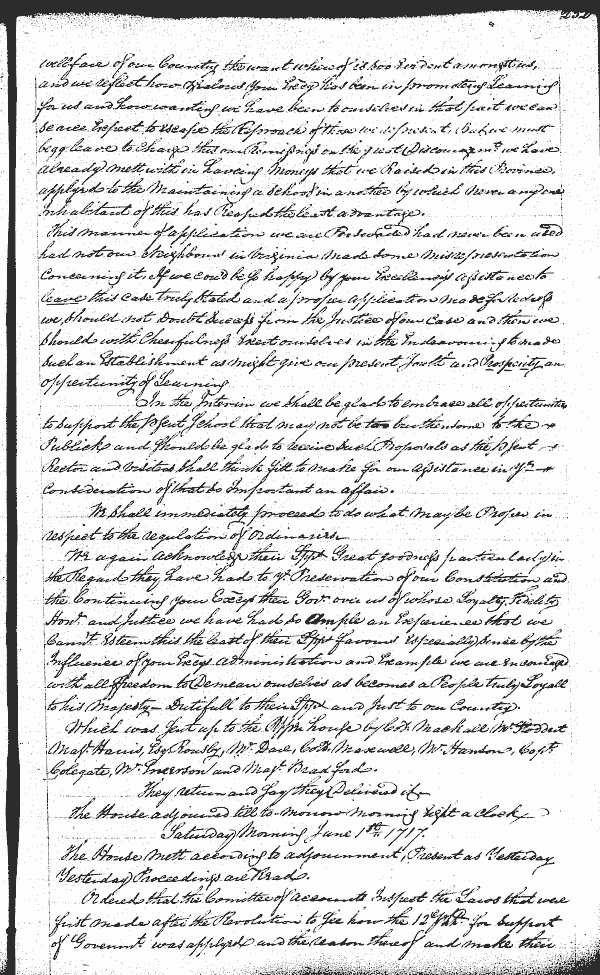 252
wellfare of our Country the want whereof is too Evident amongst us,
and we reflect how Zealous your Excy has been in promoting Learning
for us and how wanting we have been to ourselves in that part we can
scarce Expect to escape the Reproach of those we represent, but we must
begg leave to Charge this our Remissness on the great Discouragmt we have
already mett with in haveing Moneys that we Raised in this Province
applyed to the Maintaining a School in another by which never any one
Inhabitant of this has Reaped the least advantage.
This manner of application we are Perswaded had never been used
had not our Neighbours in Virginia made Some Misrepresentation
Concerning it, If we could be so happy by your Excellencys assistance to
leave this Case truly Stated and a proper application made for redress
we should not Doubt Success from the Justice of our Case and then we
should with Cheerfulness Exert ourselves in the Endeavouring to made
such an Establishment as might give our present Youth and Prosperity an
opportunity of Learning
In the Interim we shall be glad to embrace all opportunities
to support the psent School that may not be too burthensome to the
Publick and should be glad to receive such Proposals as the psent
Rector and Visitors shall think fitt to make for our assistance in ye
Consideration of that so Important an affair.
We shall immediately proceed to do what may be Proper in
respect to the regulation of Ordinarys.
We again acknowledge their Lpps Great goodness particularly in
the Regard they have had to ye Preservation of our Constitution and
the Continuing your Excy their Govr over us of whose Loyalty, Fidelity
Honr and Justice we have had so Ample an Experience that we
Cannot Esteem this the least of their Lpps favours Especially since by the
Influence of your Excys administration and Example we are Ensured
with all freedom to Demean ourselves as becomes a People truly Loyall
to his Majesty Dutifull to their Lpps and Just to our Country.
Which was sent up to the Upper house by Col. Mackall Mr Stoddert
Majr Harris, Esqr Rousby, Mr Dare, Collo Maxwell, Mr Hanson, Capt
Colegate, Mr Frierson and Majr Bradford.
They return and say they Delivered it
The House adjourned till to morrow morning Eight a Clock
Saturday Morning June 1st 1717.
The House mett according to adjournment, Present as Yesterday
Yesterdays Proceedings are Read.
Ordered that the Comittee of accounts Inspect the Laws that were
first made after the Revolution to see how the 12d for support
of Govermt was applyed and the reason thereof and make their